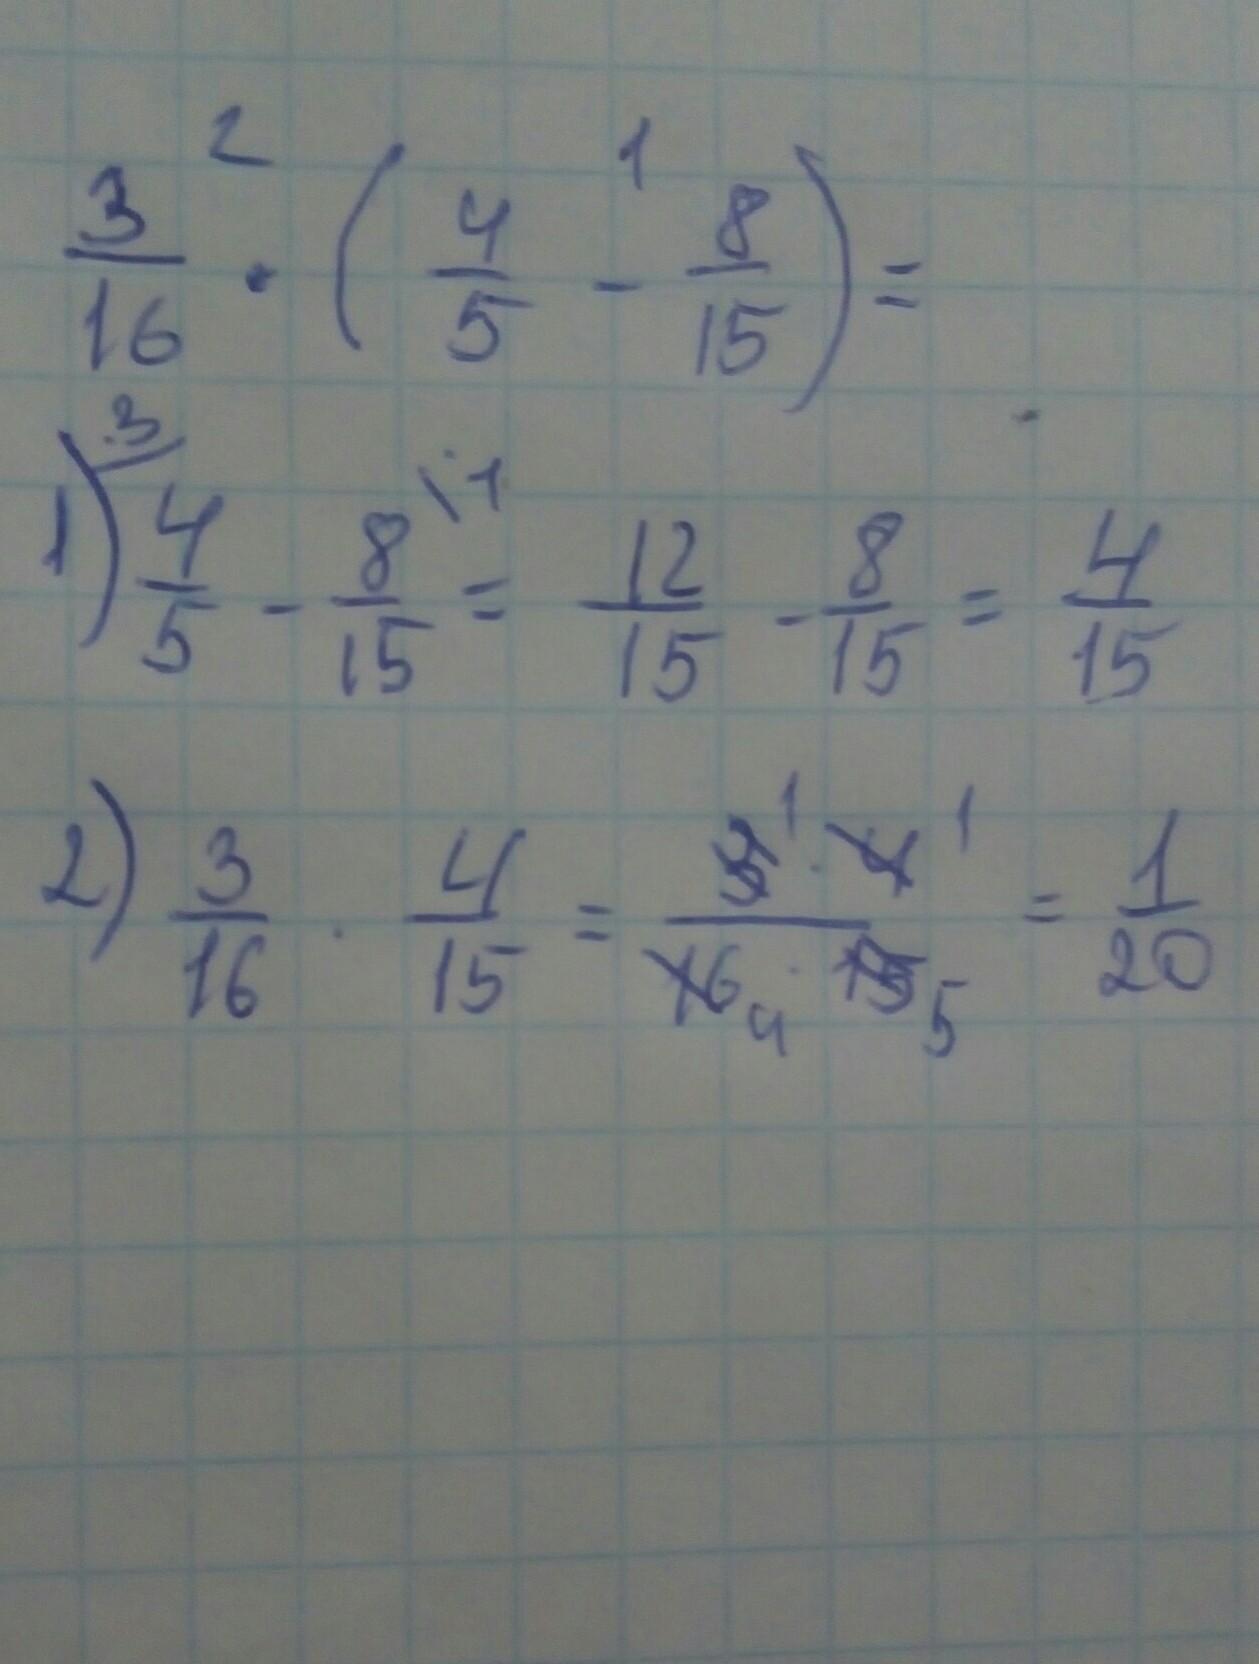 3/16 ·² (4/5 -¹ 8/15) =
1) 4/5 ³ - 8/15 \1 = 12/15 - 8/15 = 4/15
2) 3/16 · 4/15 = 3¹ · 4¹ / 16₄ · 15₅ = 1/20